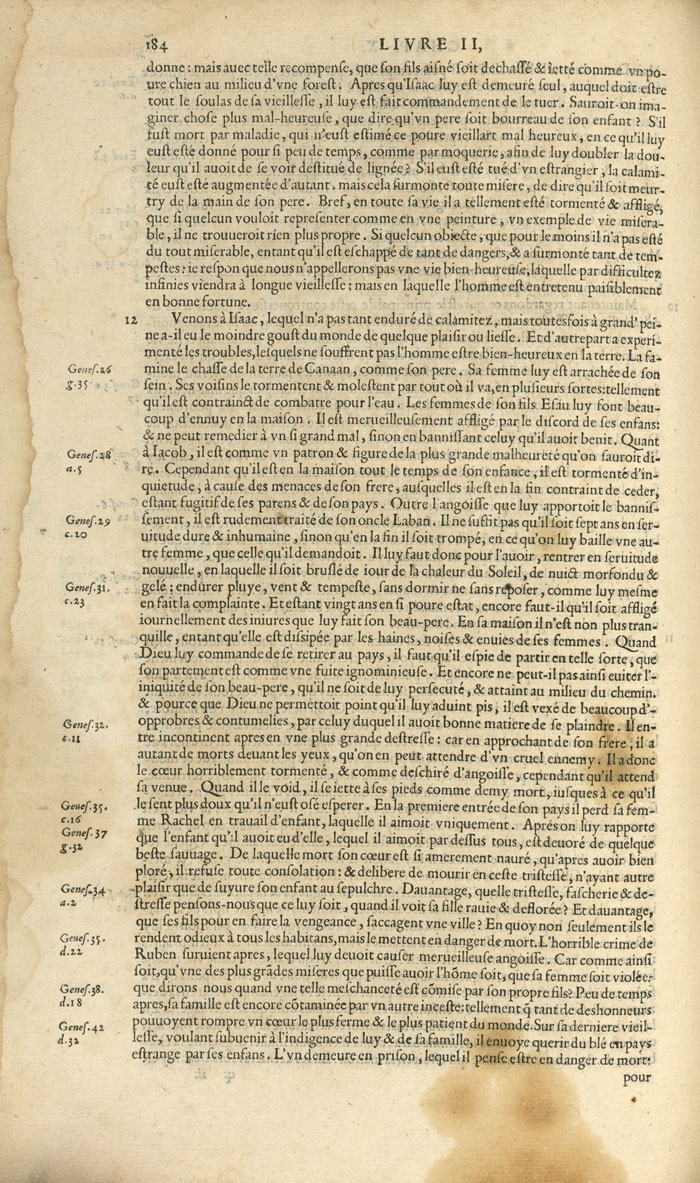 184
LIVRE II,
donne: mais auec telle recompense, que son fils aisné soit dechassé & ietté comme vn po-
ure chien au milieu d'vne forest. Apres qu'Isaac luy est demeuré seul, auquel doit estre
tout le soulas de sa vieillesse, il luy est fait commandement de le tuer. Sauroit-on ima-
giner chose plus mal-heureuse, que dire qu'vn pere soit bourreau de son enfant? S'il
fust mort par maladie, qui n'eust estimé ce poure vieillart mal heureux, en ce qu'il luy
eust esté donné pour si peu de temps, comme par moquerie, afin de luy doubler la dou-
leur qu'il auoit de se voir destitué de lignée? S'il eust esté tué d'vn estrangier, la calami-
té eust esté augmentée d'autant. mais cela surmonte toute misere, de dire qu'il soit meur-
try de la main de son pere. Bref, en toute sa vie il a tellement esté tormenté & affligé,
que si quelcun vouloit representer comme en vne peinture, vn exemple de vie misera-
ble, il ne trouueroit rien plus propre. Si quelcun obiecte, que pour le moins il n'a pas esté
du tout miserable, entant qu'il est eschappé de tant de dangers, & a surmonté tant de tem-
pestes: ie respon que nous n'appellerons pas vne vie bien-heureuse, laquelle par difficultez
infinies viendra à longue vieillesse: mais en laquelle l'homme est entretenu paisiblement
en bonne fortune.
12 Venons à Isaac, lequel n'a pas tant enduré de calamitez, mais toutesfois à grand' pei-
ne a-il eu le moindre goust du monde de quelque plaisir ou liesse. Et d'autre part a experi-
menté les troubles, lesquels ne souffrent pas l'homme estre bien-heureux en la terre. La fa-
Genes.26
mine le chasse de la terre de Canaan, comme son pere. Sa femme luy est arrachée de son
g.35
sein. Ses voisins le tormentent & molestent par tout où il va, en plusieurs sortes: tellement
qu'il est contrainct de combatre pour l'eau. Les femmes de son fils Esau luy font beau-
coup d'ennuy en la maison. Il est merueilleusement affligé par le discord de ses enfans:
& ne peut remedier à vn si grand mal, sinon en bannissant celuy qu'il auoit benit. Quant
Genes.28
à Iacob, il est comme vn patron & figure de la plus grande malheureté qu'on sauroit di-
a.5
re. Cependant qu'il est en la maison tout le temps de son enfance, il est tormenté d'in-
quietude, à cause des menaces de son frere, ausquelles il est en la fin contraint de ceder,
estant fugitif de ses parens & de son pays. Outre l'angoisse que luy apportoit le bannis-
Genes.29
sement, il est rudement traité de son oncle Laban. Il ne suffit pas qu'il soit sept ans en ser-
c.20
uitude dure & inhumaine, sinon qu'en la fin il soit trompé, en ce qu'on luy baille vne au-
tre femme, que celle qu'il demandoit. Il luy faut donc pour l'auoir, rentrer en seruitude
nouuelle, en laquelle il soit bruslé de iour de la chaleur du Soleil, de nuict morfondu &
Genes.31.
gelé: endurer pluye, vent & tempeste, sans dormir ne sans reposer, comme luy mesme
c.23
en fait la complainte. Et estant vingt ans en si poure estat, encore faut-il qu'il soit affligé
iournellement des iniures que luy fait son beau-pere. En sa maison il n'est non plus tran-
quille, entant qu'elle est dissipée par les haines, noises & enuies de ses femmes. Quand
Dieu luy commande de se retirer au pays, il faut qu'il espie de partir en telle sorte, que
son partement est comme vne fuite ignominieuse. Et encore ne peut-il pas ainsi euiter l'-
iniquité de son beau-pere, qu'il ne soit de luy persecuté, & attaint au milieu du chemin.
& pource que Dieu ne permettoit point qu'il luy aduint pis, il est vexé de beaucoup d'-
Genes.32.
opprobres & contumelies, par celuy duquel il auoit bonne matiere de se plaindre. Il en-
c.11
tre incontinent apres en vne plus grande destresse: car en approchant de son frere, il a
autant de morts deuant les yeux, qu'on en peut attendre d'vn cruel ennemy. Il a donc
le cœur horriblement tormenté, & comme deschiré d'angoisse, cependant qu'il attend
sa venue. Quand il le void, il se iette à ses pieds comme demy mort, iusques à ce qu'il
Genes.35.
le sent plus doux qu'il n'eust osé esperer. En la premiere entrée de son pays il perd sa fem-
c.16
me Rachel en trauail d'enfant, laquelle il aimoit vniquement. Apres on luy rapporte
Genes.37
que l'enfant qu'il auoit eu d'elle, lequel il aimoit par dessus tous, est deuoré de quelque
g.32
beste sauuage. De laquelle mort son cœur est si amerement nauré, qu'apres auoir bien
ploré, il refuse toute consolation: & delibere de mourir en ceste tristesse, n'ayant autre
Genes.34
plaisir que de suyure son enfant au sepulchre. Dauantage, quelle tristesse, fascherie & de-
a.2
stresse pensons-nous que ce luy soit, quand il voit sa fille rauie & deflorée? Et dauantage,
que ses fils pour en faire la vengeance, saccagent vne ville? En quoy non seulement ils le
Genes.35.
rendent odieux à tous les habitans, mais le mettent en danger de mort. L'horrible crime de
d.22
Ruben suruient apres, lequel luy deuoit causer merueilleuse angoisse. Car comme ainsi
soit, qu'vne des plus grādes miseres que puisse auoir l'hōme soit, que sa femme soit violée:
Genes.38.
que dirons nous quand vne telle meschanceté est cōmise par son propre fils? Peu de temps
d.18
apres, sa famille est encore cōtaminée par vn autre inceste: tellement q̃ tant de deshonneurs
Genes.42
pouuoyent rompre vn cœur le plus ferme & le plus patient du monde. Sur sa derniere vieil-
d.32
lesse, voulant subuenir à l'indigence de luy & de sa famille, il enuoye querir du blé en pays
estrange par ses enfans. L'vn demeure en prison, lequel il pense estre en danger de mort:
pour